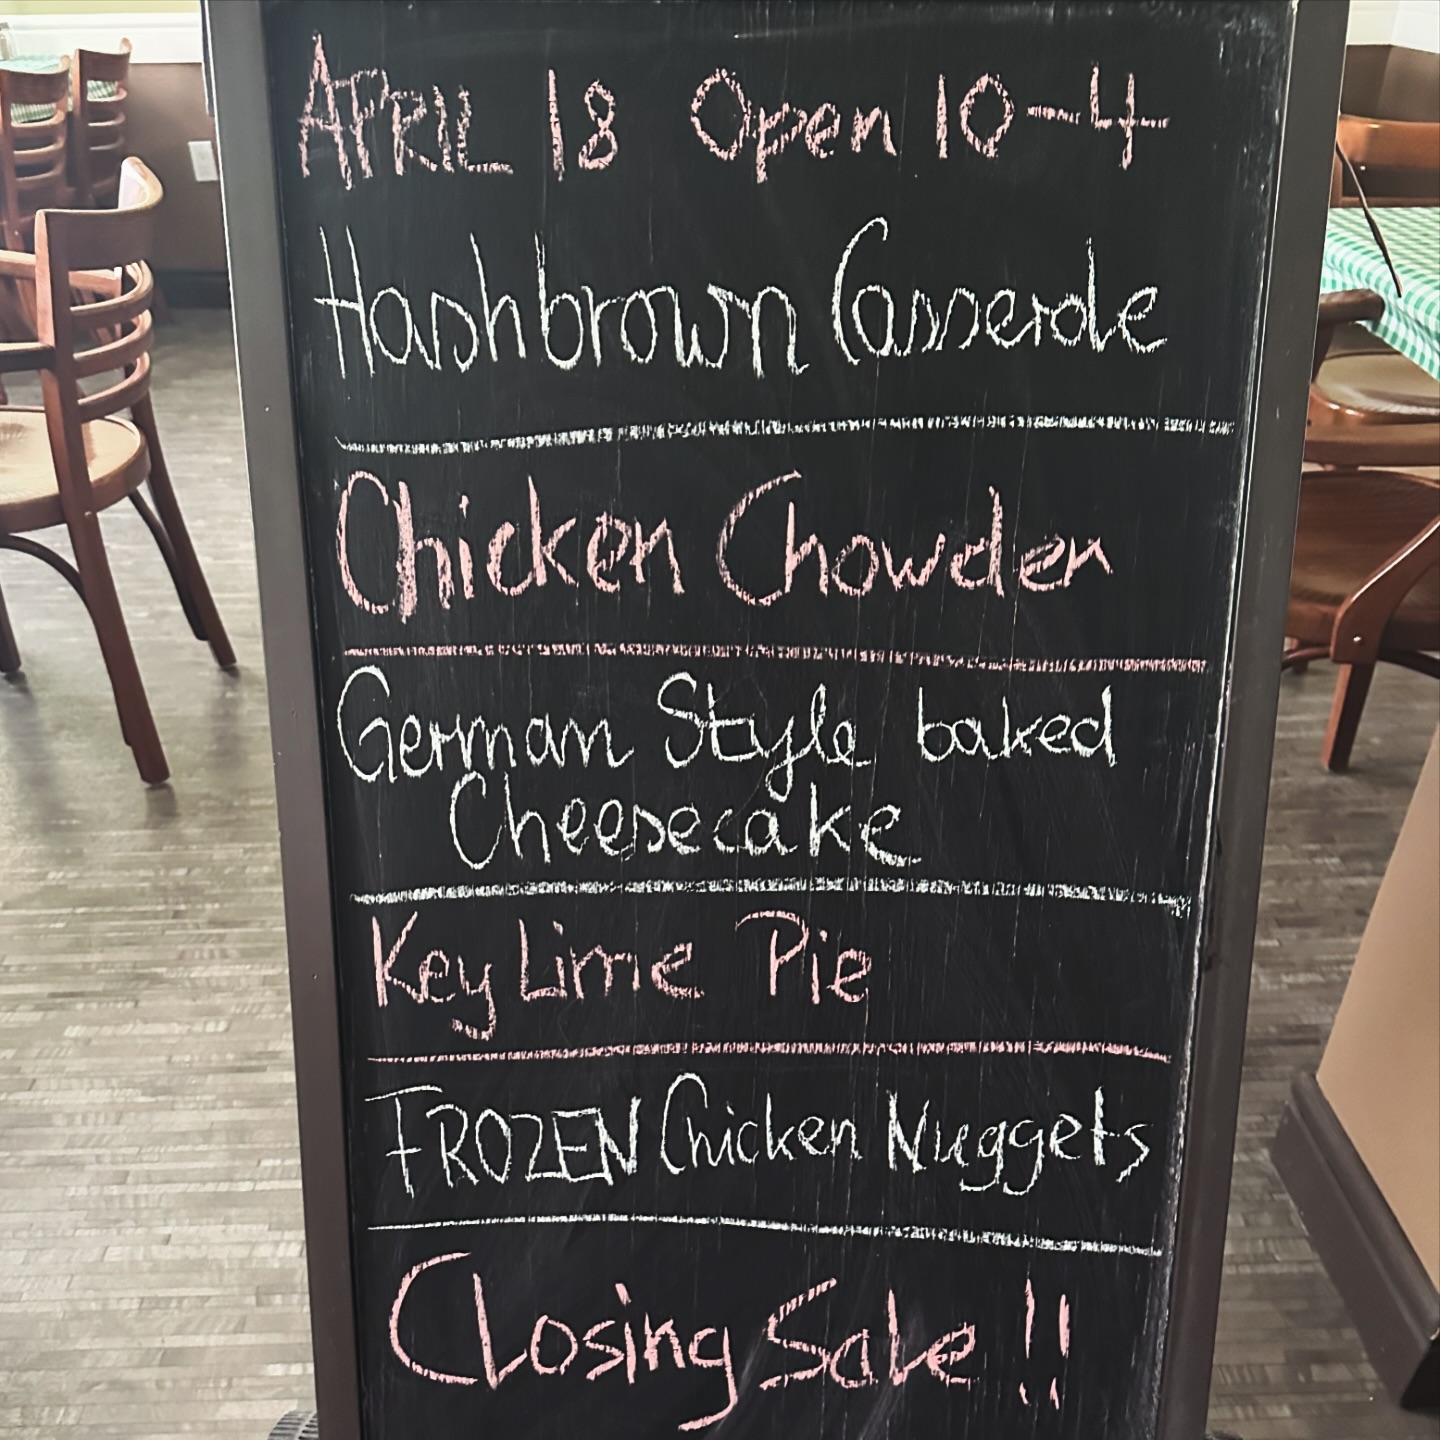 APRIL 18 Open 10-4
Hashbrown Casserole
Chicken Chowder
German Style baked
Cheesecake
Key Lime Pie
FROZEN Chicken Nuggets
CLosing Sale !!